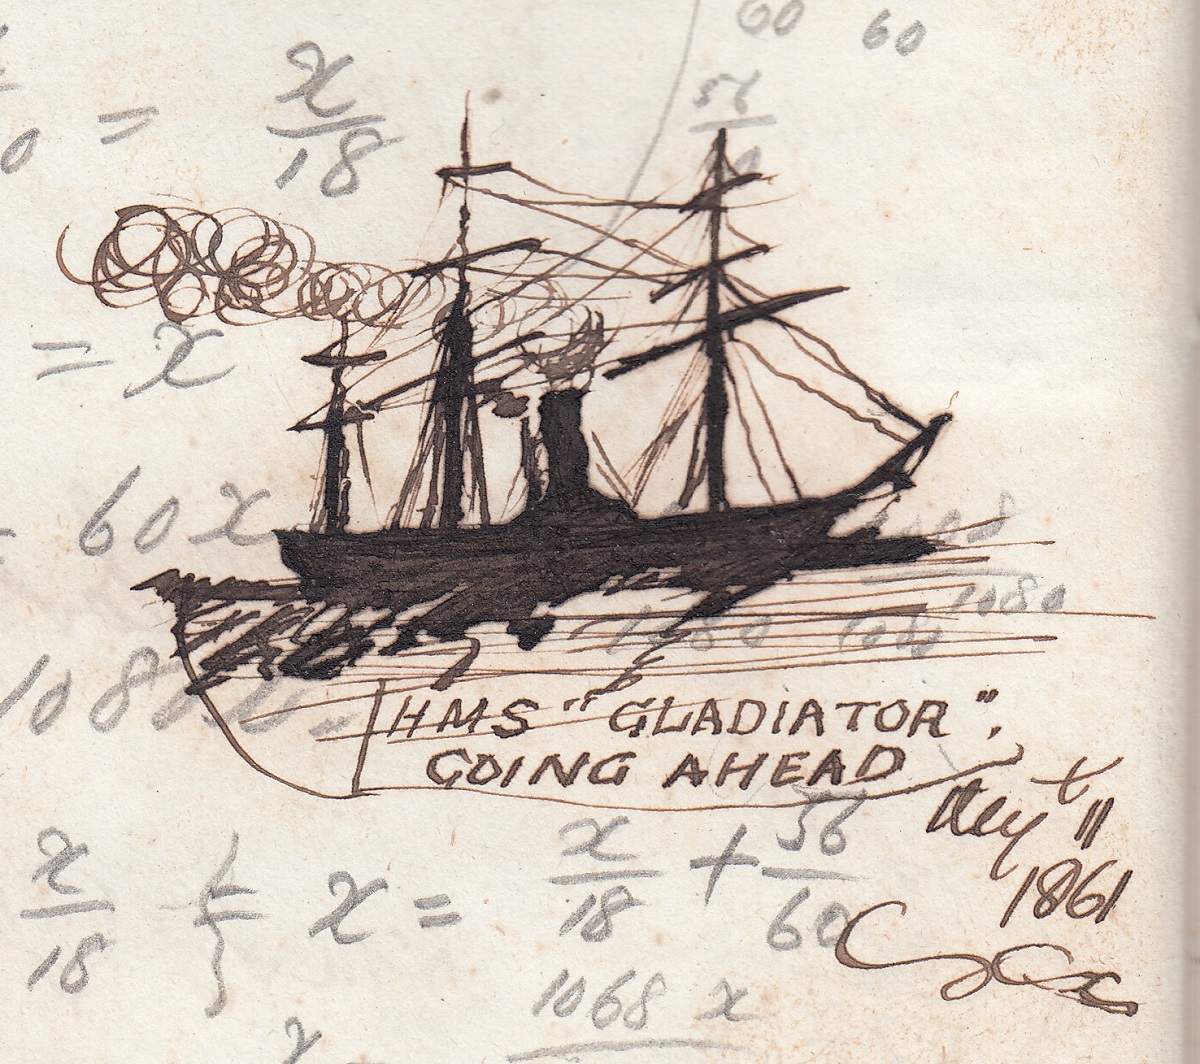 60 60
56
= x/18
0
= x
60 x
1080
108
HMS "GLADIATOR".
GOING AHEAD
11
1861
x/18 x = x/18 + 56/60
1068 x